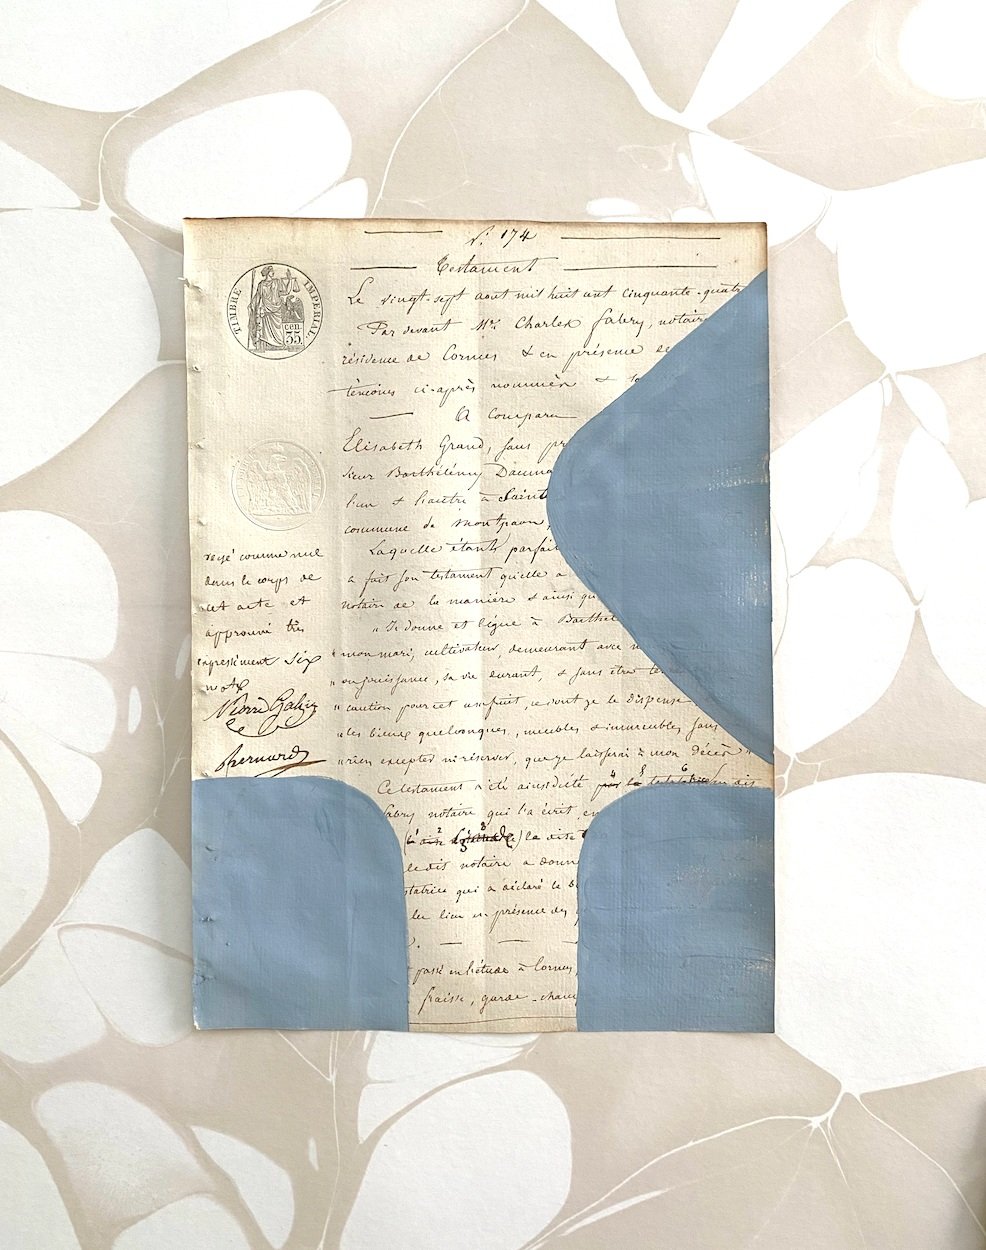 N.° 174
Testament
TIMBRE IMPERIAL
cen.
35.
Le vingt-sept aout mil huit cent cinquante-quatre
Par devant Me. Charles Fabry, notaire
résidence de Cornus & en présence de
témoins ci-après nommés &
A Comparu
Elisabeth Grand, sans pr
sieur Barthélémy Dauma
l'un & l'autre à Saint
commune de Montpaon,
Laquelle étant parfait
a fait son testament qu'elle a
notaire de la manière & ainsi qu
" Je donne et lègue à Barthél
" mon mari, cultivateur, demeurant avec m
" ou jouissance, sa vie durant, & sans être te
" caution pour cet usufruit, ce dont je le dispense
" les biens quelconques, meubles & immeubles sans
" rien excepter ni réserver, que je laisserai à mon décès "
Ce testament a été ainsi dicté par la testatrice
Fabry notaire qui l'a écrit en
la dite
le dit notaire a donn
statrice qui a déclaré le b
lu en présence des
passé en l'étude à Cornus,
fraisse, garde-cham
rayé comme nul
dans le corps de
cet acte et
approuvé très
expressément six
mots